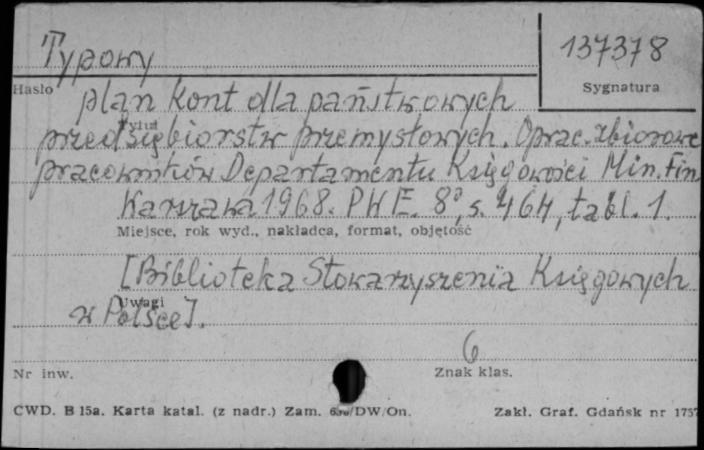 Typowy
137378
Hasło
Sygnatura
plan kont dla państwowych
Tytuł
przedsiębiorstw przemysłowych. Oprac. zbiorowe
pracowników Departamentu Księgowości Min. Fin.
Warszawa 1968. PWE. 8°, s. 464, tabl. 1.
Miejsce, rok wyd., nakładca, format, objętość
[Biblioteka Stowarzyszenia Księgowych
Uwagi
w Polsce].
6
Nr inw.
Znak klas.
CWD. B 15a. Karta katal. (z nadr.) Zam. /DW/On.
Zakł. Graf. Gdańsk nr 1757